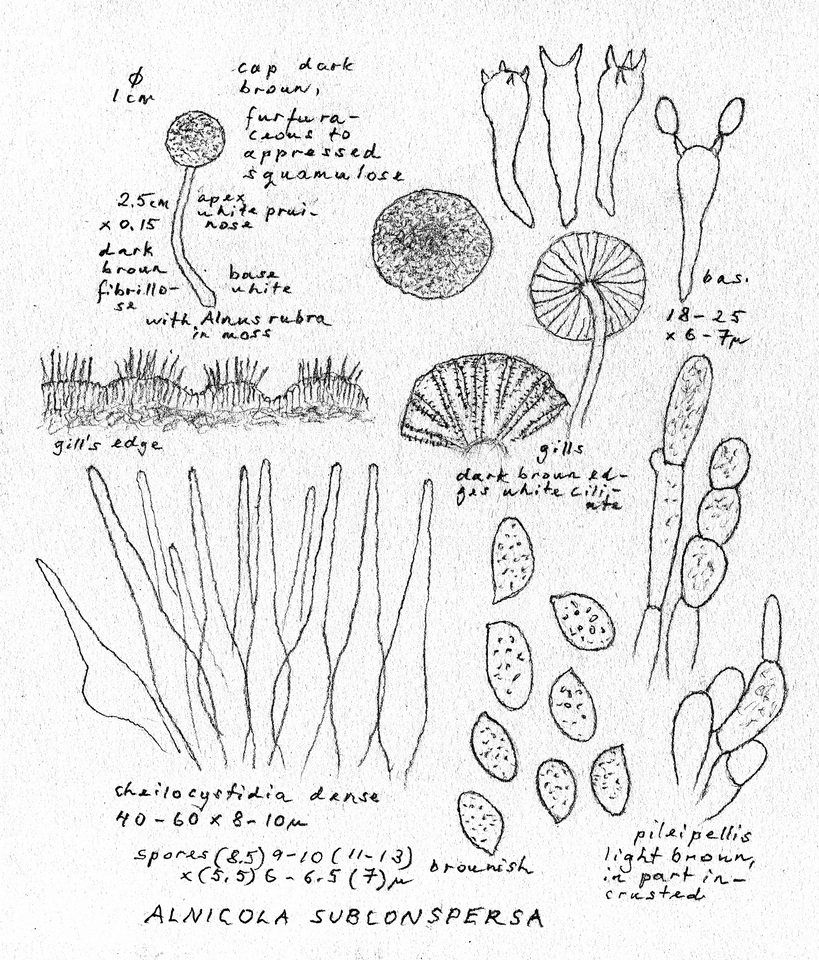 ϕ
1 cm
cap dark
brown,
furfura-
ceous to
appressed
squamulose
2.5cm
x 0.15
dark
brown
fibrillo-
se
apex
white prui-
nose
base
white
with Alnus rubra
in moss
bas.
18-25
x 6-7µ
gill's edge
gills
dark brown ed-
ges white cili-
ate
cheilocystidia dense
40-60 x 8-10µ
spores (8.5) 9-10 (11-13)
x (5.5) 6-6.5 (7)µ
brownish
pileipellis
light brown,
in part in-
crusted
ALNICOLA SUBCONSPERSA